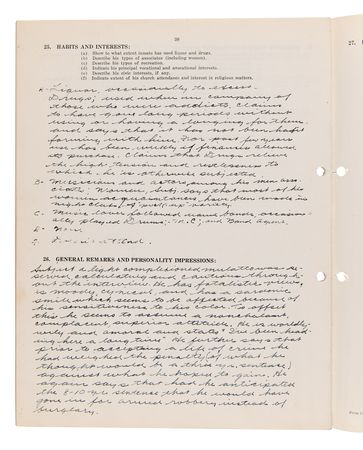 28
27.
25. HABITS AND INTERESTS:
(a) Show to what extent inmate has used liquor and drugs.
(b) Describe his types of associates (including women).
(c) Describe his types of recreation.
(d) Indicate his principal vocational and avocational interests.
(e) Describe his civic interests, if any.
(f) Indicate extent of his church attendance and interest in religious matters.
A- Liquor, occasionally to excess.
Drugs; used when in company of
those who were addicts. Claims
to have gone long periods without
using or having a longing for them
and says that it has not been habit
forming with him. For past years
use has been weekly if finances allowed
its purchase. Claims that Drugs relieve
the high tension and restlessness to
which he is otherwise subjected
B- Musicians and actors among his men asso-
ciates; Women, Subj. says that most of his
women acquaintances have been made in
night clubs
C- Music lover followed name bands, occasion-
ally played Drums; M.C., and Band Agent.
E- None
26. GENERAL REMARKS AND PERSONALITY IMPRESSIONS:
Subject a light complexioned mulatto was re-
served, calculating and cautious through-
out the interview. He has fatalistic views,
is moody, cynical and has a sardonic
smile which seems to be affected because of
his sensitiveness to his color. To offset
this he seems to assume a nonchalant,
complacent superior attitude. He is worldly-
wise and amoral and stated "I've been head-
ing here a long time" He further says that
prior to accepting a life of crime he
had weighed the penalty (of what he
thought would be a three yr. sentence)
against what he hoped to gain. He
again says that had he anticipated
the 8-10 yr. sentence that he would have
gone in for armed robbery instead of
burglary.